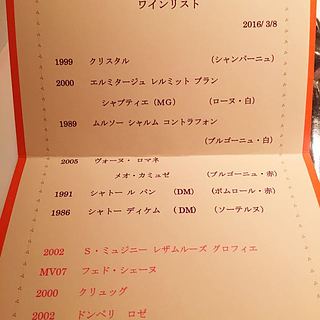 ワインリスト
2016/3/8
1999 クリスタル (シャンパーニュ)
2000 エルミタージュ レルミット ブラン
シャプティエ (MG) (ローヌ・白)
1989 ムルソー シャルム コントラフォン
(ブルゴーニュ・白)
2005 ヴォーヌ・ロマネ
メオ・カミュゼ (ブルゴーニュ・赤)
1991 シャトー ル パン (DM) (ポムロール・赤)
1986 シャトー ディケム (DM) (ソーテルヌ)
2002 S・ミュジニー レザムルーズ グロフィエ
MV07 フェド・シェーヌ
2000 クリュッグ
2002 ドンペリ ロゼ